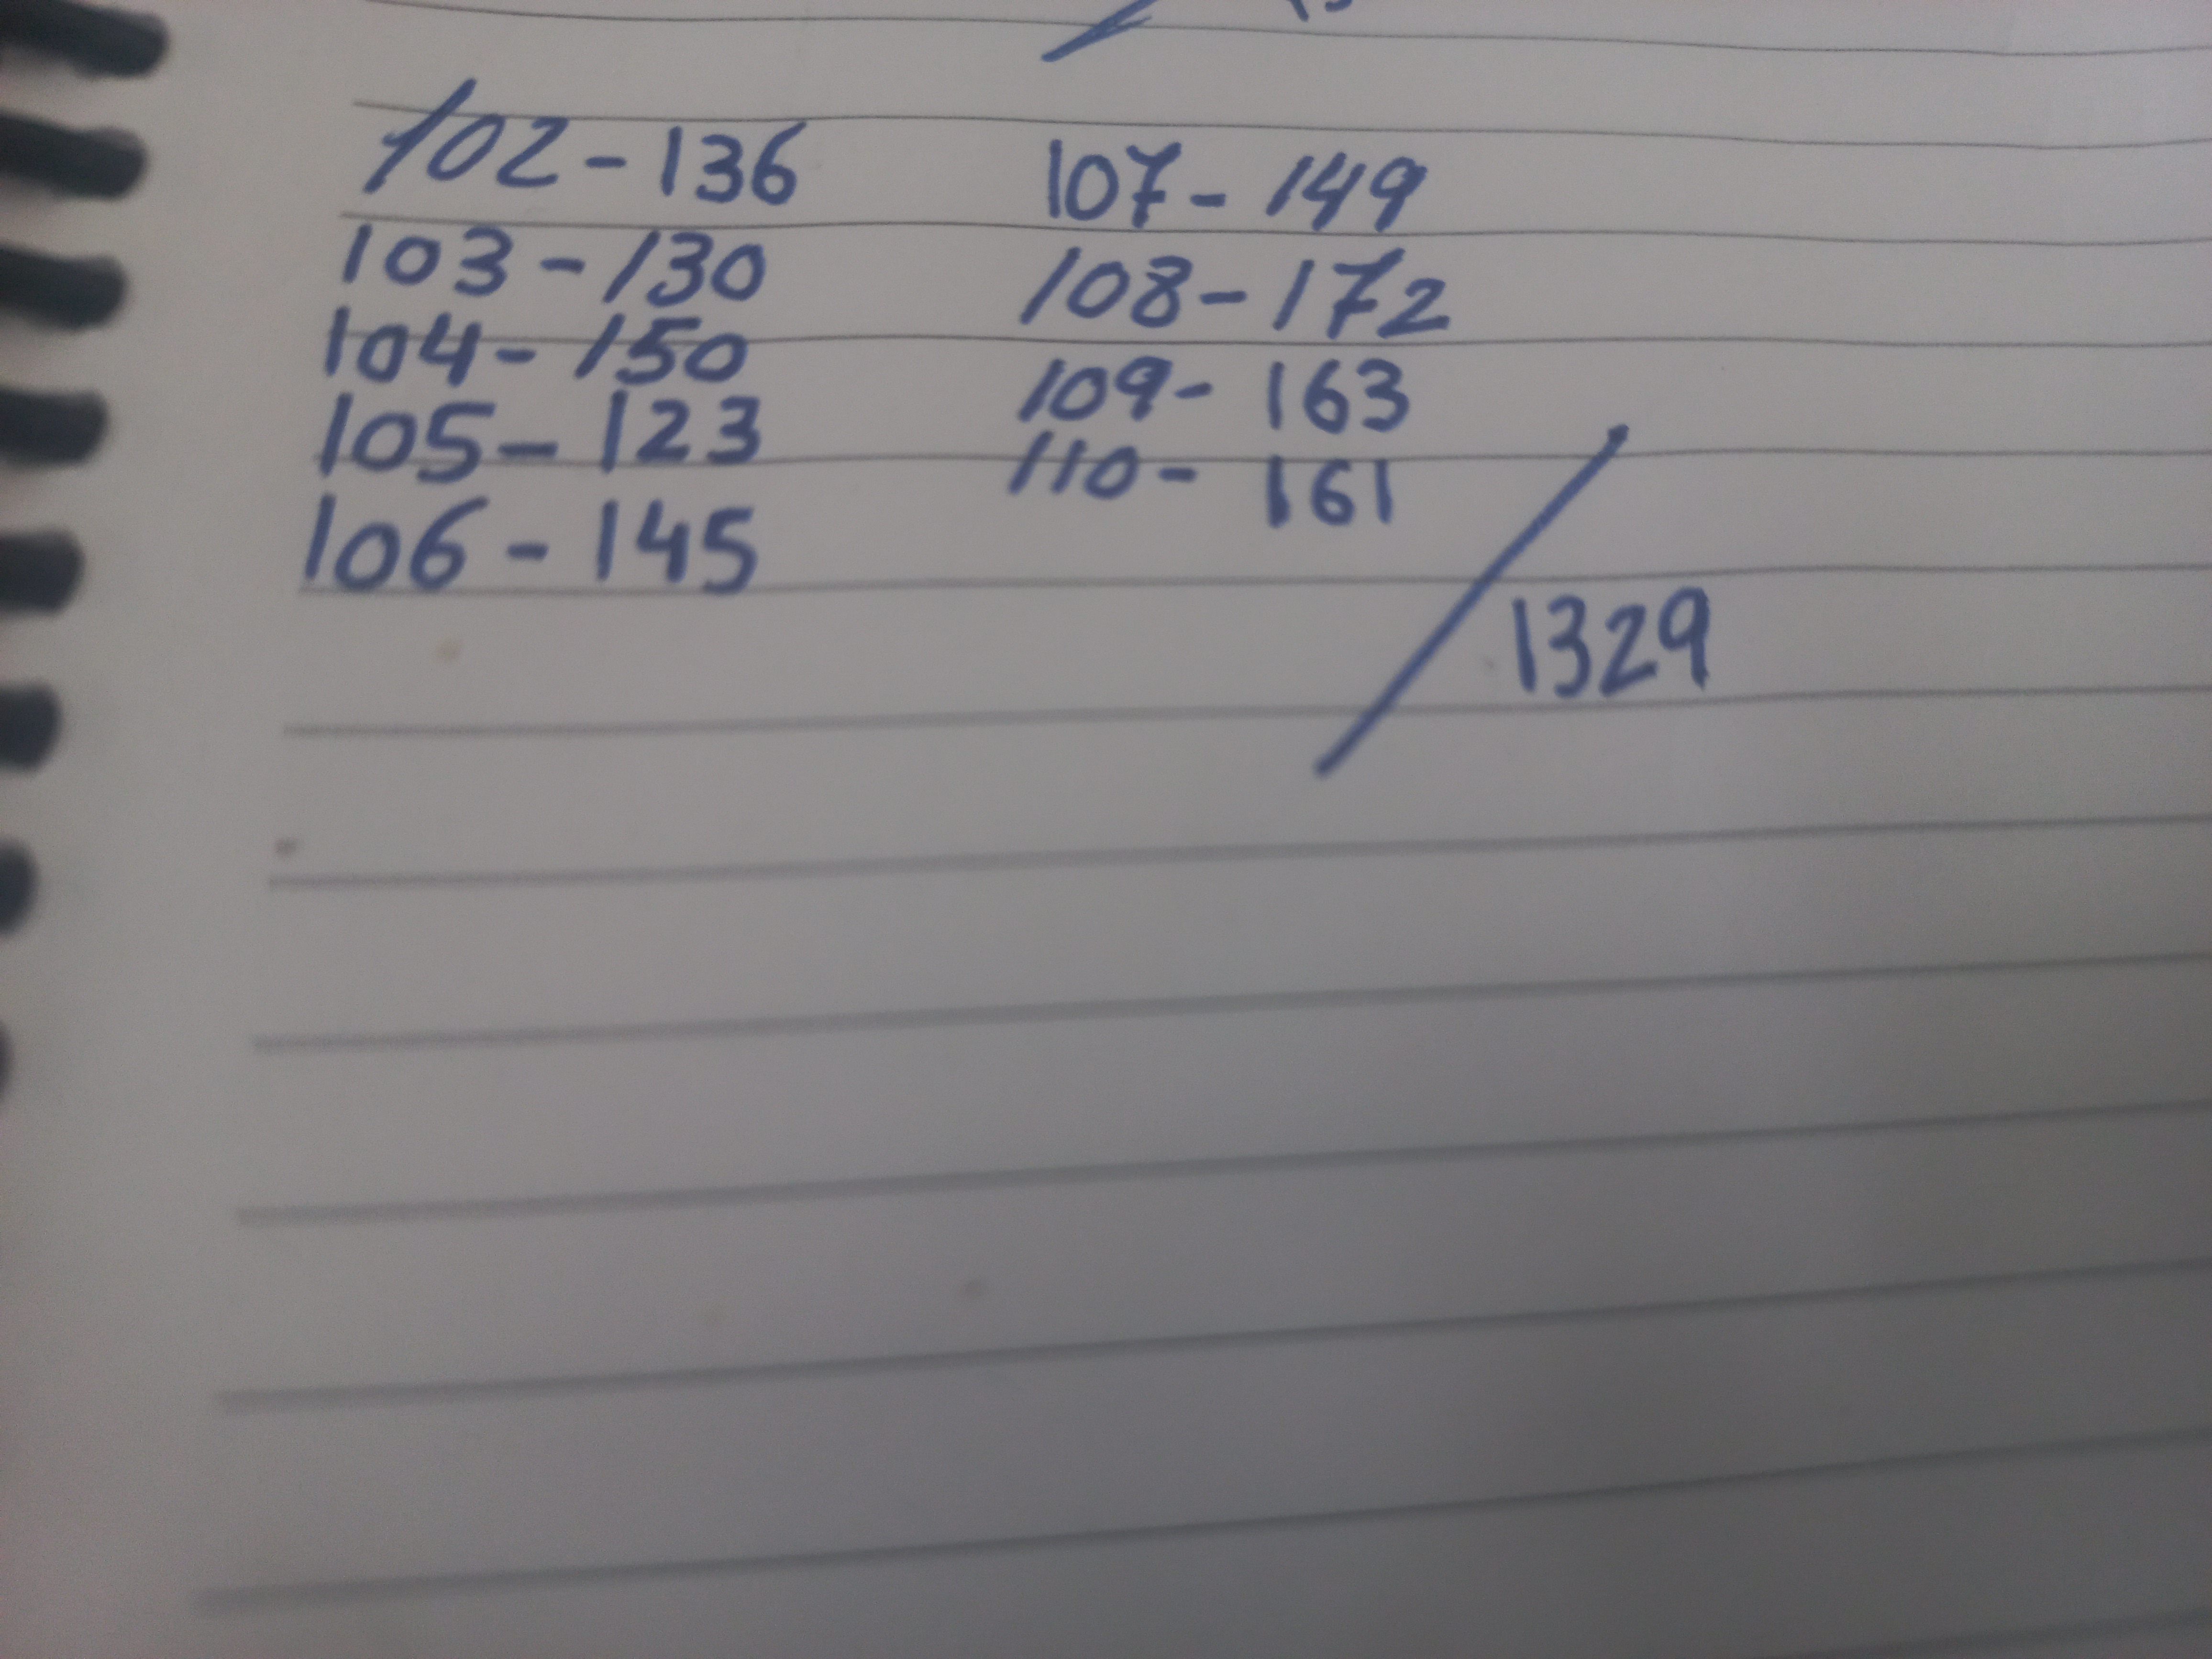 102-136
103-130
104-150
105-123
106-145
107-149
108-172
109-163
110-161
1329